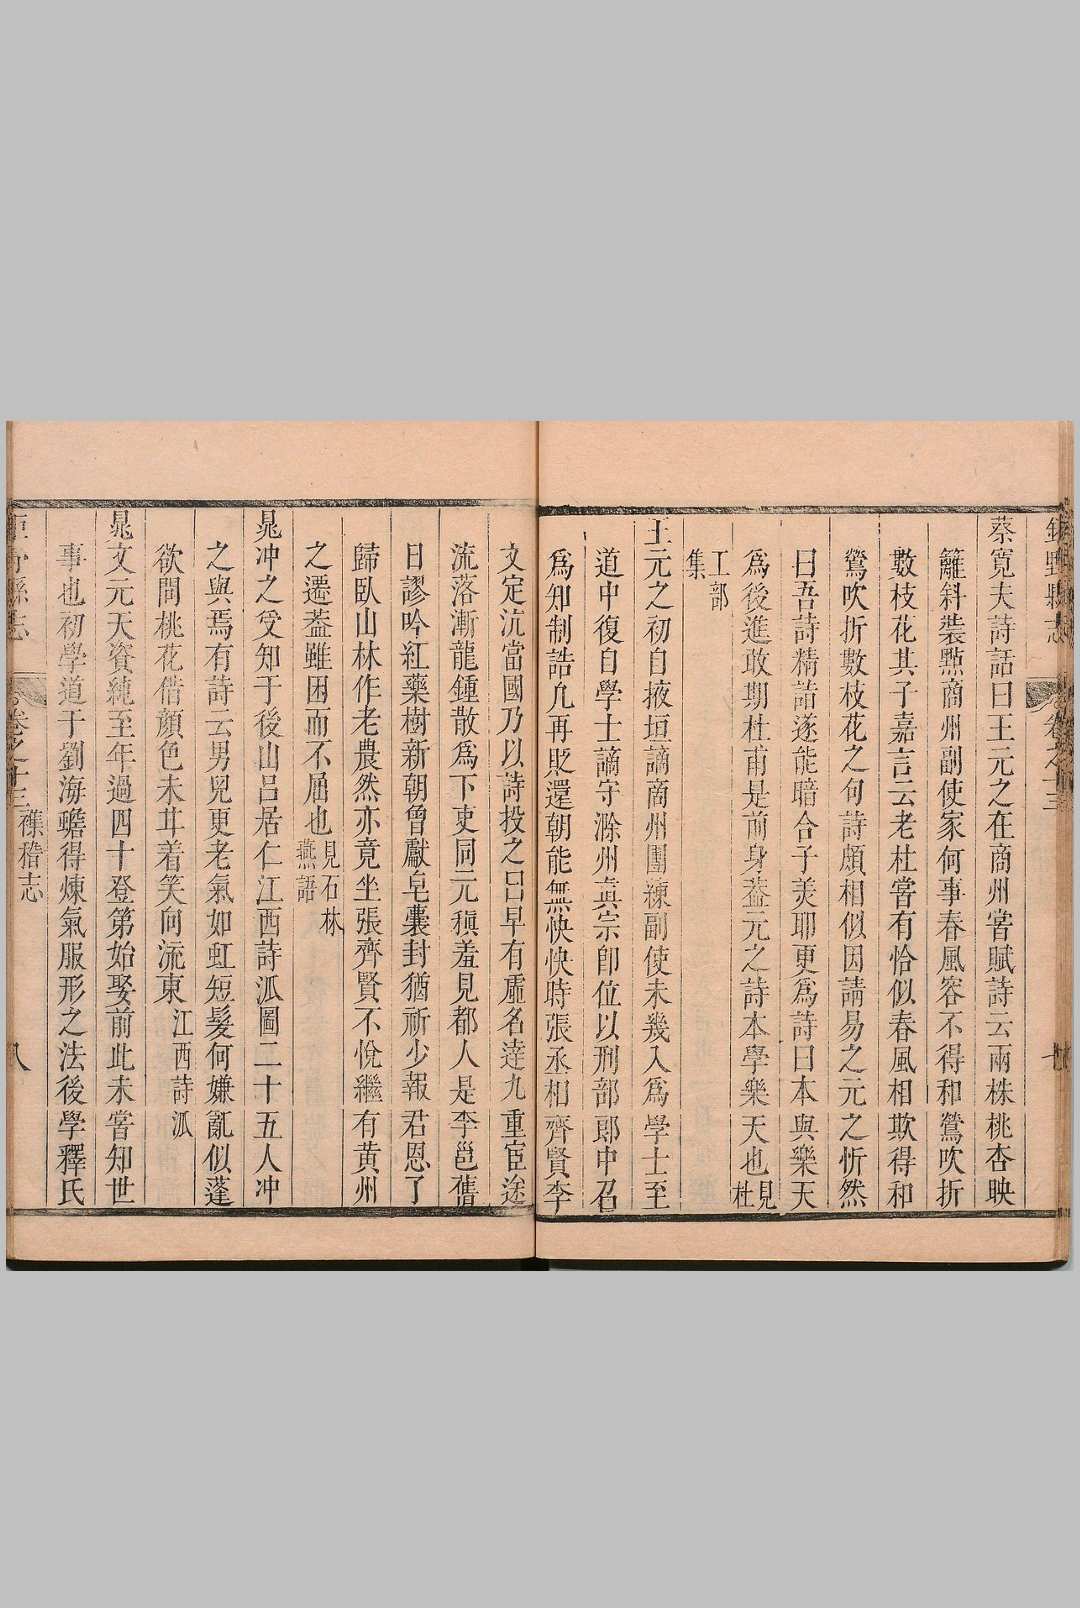 鉅野縣志
卷之十三
蔡寬夫詩話曰王元之在商州嘗賦詩云兩株桃杏映
籬斜裝㸃商州副使家何事春風容不得和鶯吹折
數枝花其子嘉言云老杜嘗有恰似春風相欺得和
鶯吹折數枝花之句詩頗相似因請易之元之忻然
曰吾詩精詣遂能暗合子美耶更爲詩曰本與樂天
爲後進敢期杜甫是前身葢元之詩本學樂天也見杜
工部集
王元之初自掖垣謫商州團練副使未幾入爲學士至
道中復自學士謫守滁州眞宗卽位以刑部郎中召
爲知制誥凢再貶還朝能無怏怏時張丞相齊賢李
文定沆當國乃以詩投之曰早有虛名達九重宦途
流落漸龍鍾散爲下吏同元稹羞見都人是李邕舊
日謬吟紅藥樹新朝曾獻皂囊封猶祈少報君恩了
歸臥山林作老農然亦竟坐張齊賢不悅繼有黃州
之遷葢雖困而不屈也見石林燕語
晁冲之受知于後山吕居仁江西詩派圖二十五人冲
之與焉有詩云男兒更老氣如虹短髮何嫌亂似蓬
欲問桃花借顏色未甘着笑向流東江西詩派
晁文元天資純至年過四十登第始娶前此未嘗知世
事也初學道于劉海蟾得煉氣服形之法後學釋氏
鉅野縣志
卷之十三 襍稽志
八